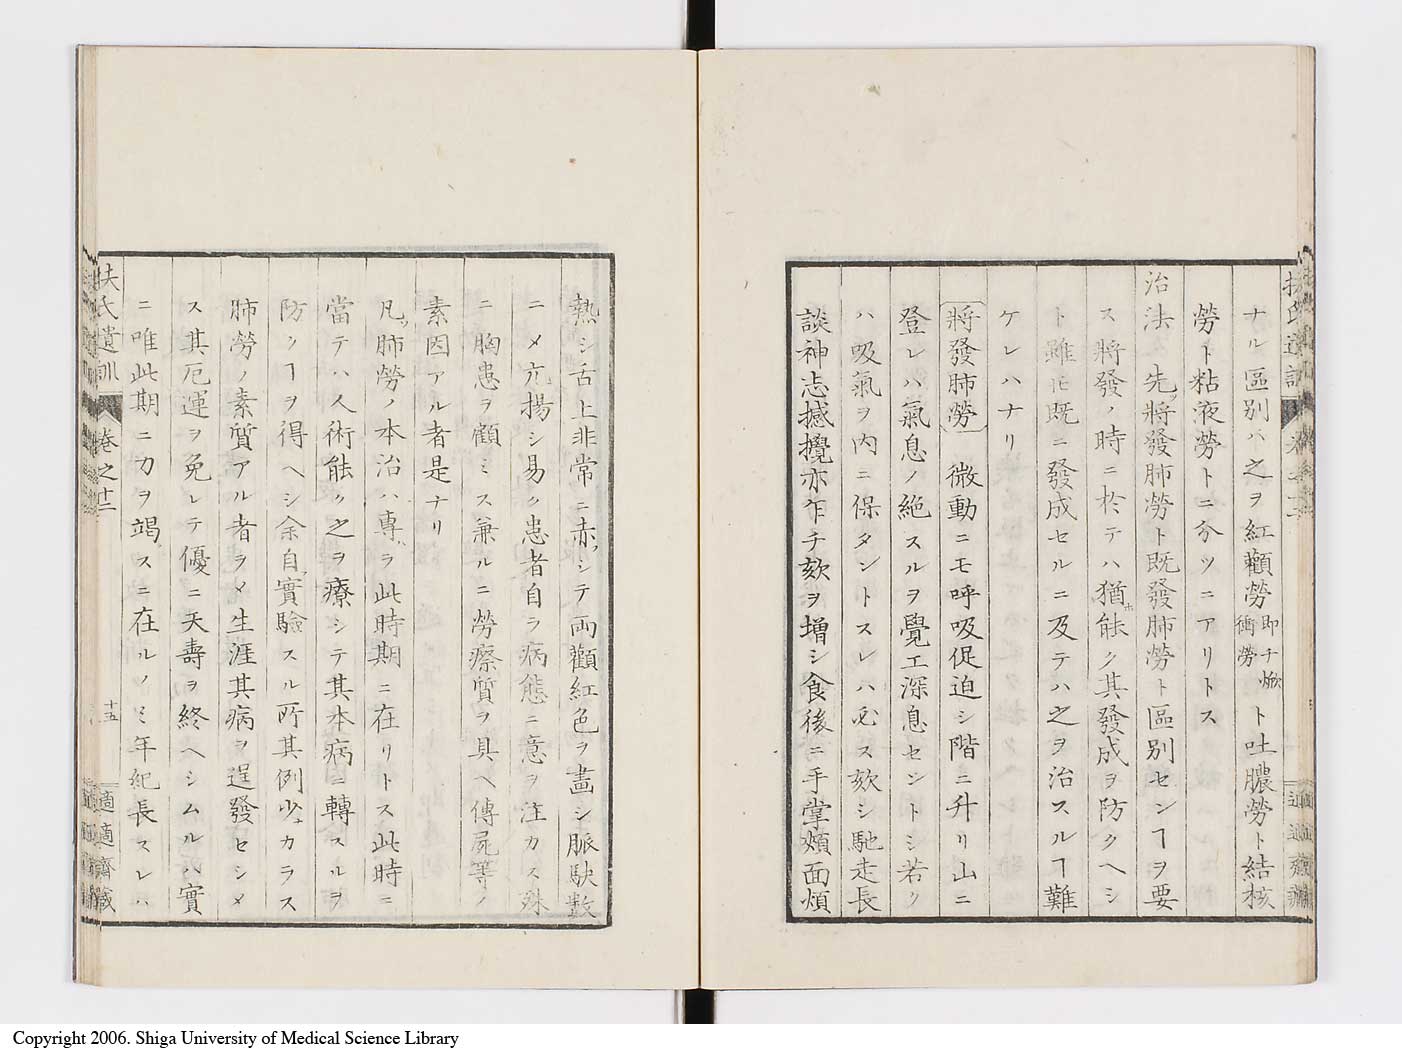 ナル區別ハ之ヲ紅顴勞即チ焮衝勞ト吐膿勞ト結核
勞ト粘液勞トニ分ツニアリトス
治法 先ツ將發肺勞ト既發肺勞ト區別センヿヲ要
ス將發ノ時ニ於テハ猶ホ能ク其發成ヲ防クヘシ
ト雖𪜈既ニ發成セルニ及テハ之ヲ治スルヿ難
ケレハナリ
將發肺勞 微動ニモ呼吸促迫シ階ニ升リ山ニ
登レハ氣息ノ絶スルヲ覺エ深息セントシ若ク
ハ吸氣ヲ内ニ保タントスレハ必ス欬シ馳走長
談神志撼攪亦乍チ欬ヲ增シ食後ニ手掌頰面煩
熱シ舌上非常ニ赤ッシテ兩顴紅色ヲ畫シ脈駃數
ニメ亢揚シ易ク患者自ラ病態ニ意ヲ注カス殊
ニ胸患ヲ顧ミス兼ルニ勞瘵質ヲ具ヘ傳屍等ノ
素因アル者是ナリ
凡ソ肺勞ノ本治ハ專ラ此時期ニ在リトス此時ニ
當テハ人術能ク之ヲ療シテ其本病ニ轉スルヲ
防クヿヲ得ヘシ余自ラ實驗スル所其例少カラス
肺勞ノ素質アル者ラメ生涯其病ヲ逞發セシメ
ス其厄運ヲ免レテ優ニ天壽ヲ終ヘシムルハ實
ニ唯此期ニ力ヲ竭スニ在ルノミ年紀長スレハ
扶氏遺訓 卷之十二 十五 適適齋藏
Copyright 2006. Shiga University of Medical Science Library